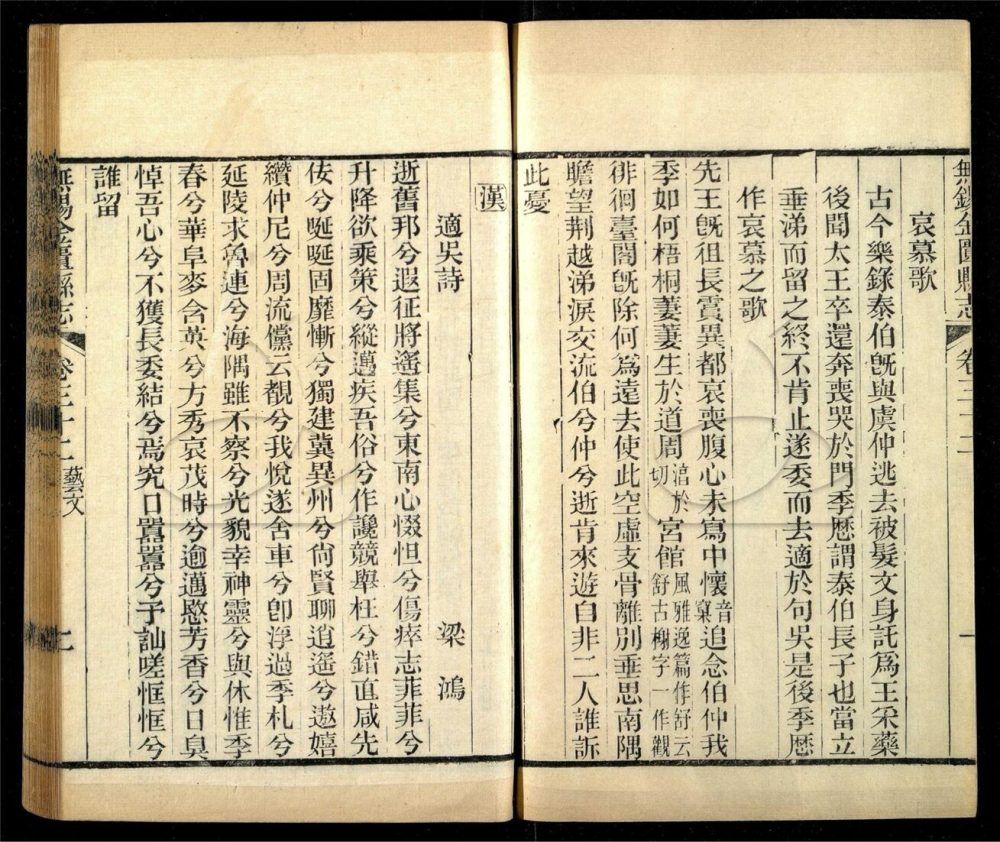 無錫金匱縣志
卷三十二
哀慕歌
古今樂錄泰伯旣與虞仲逃去被髮文身託爲王采藥
後聞太王卒還奔喪哭於門季歷謂泰伯長子也當立
垂涕而留之終不肯止遂委而去適於句吳是後季歷
作哀慕之歌
先王旣徂長霣異都哀喪腹心未寫中懷音裏追念伯仲我
季如何梧桐萋萋生於道周切宮館風雅逸篇作舒云舒古榭字一作觀
徘徊臺閣旣除何爲遠去使此空虛支骨離別垂思南隅
瞻望荆越涕淚交流伯兮仲兮逝肯來遊自非二人誰訴
此憂
漢
適吳詩 梁鴻
逝舊邦兮遐征將遙集兮東南心惙怛兮傷瘁志菲菲兮
升降欲乘策兮縱邁疾吾俗兮作讒競舉枉兮錯直咸先
佞兮唌唌固靡慚兮獨建冀異州兮尙賢聊逍遙兮遨嬉
纘仲尼兮周流儻云覩兮我悅遂舍車兮卽浮過季札兮
延陵求魯連兮海隅雖不察兮光貌幸神靈兮與休惟季
春兮華阜麥含英兮方秀哀茂時兮逾邁愍芳香兮日臭
悼吾心兮不獲長委結兮焉究口囂囂兮予訕嗟恇恇兮
誰留
無錫金匱縣志
卷三十二
藝文